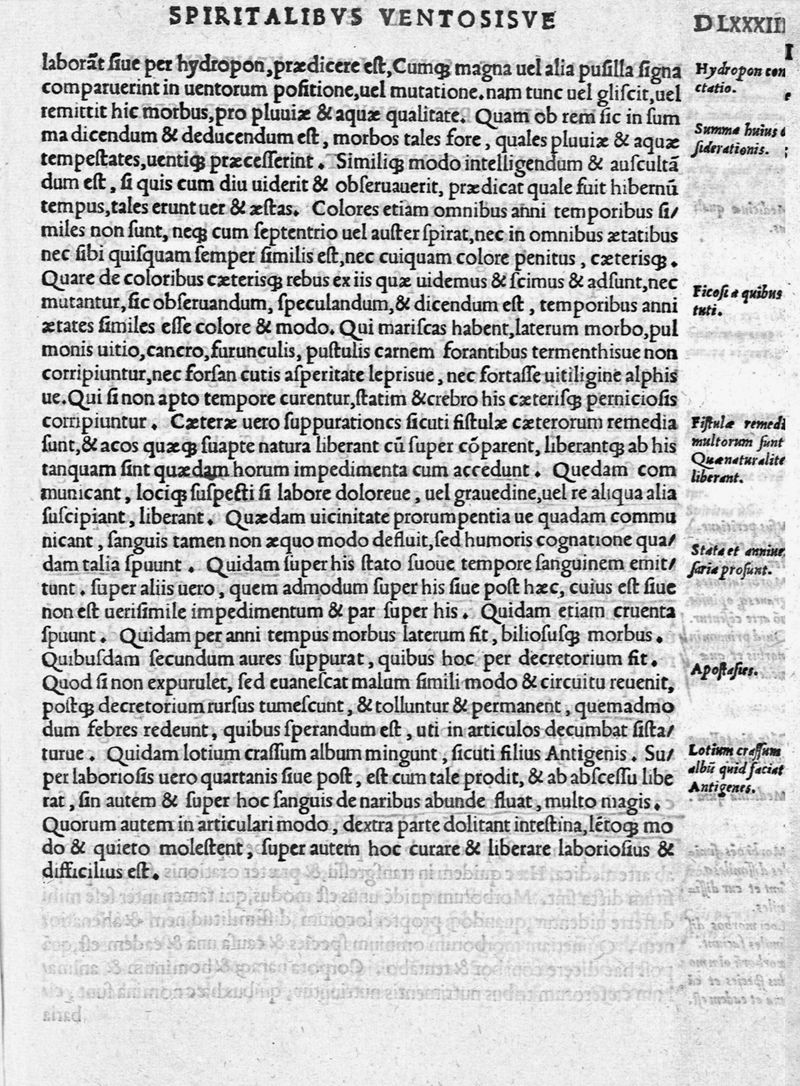 SPIRITALIBVS VENTOSISVE
DLXXXIII
laborāt ſiue per hydropon,prædicere eſt,Cumq; magna uel alia puſilla ſigna
comparuerint in uentorum poſitione,uel mutatione.nam tunc uel gliſcit,uel
remittit hic morbus,pro pluuiæ & aquæ qualitate. Quam ob rem ſic in ſum
ma dicendum & deducendum eſt, morbos tales fore, quales pluuiæ & aquæ
tempeſtates,uentiq; præceſſerint. Similiq; modo intelligendum & auſcultā
dum eſt, ſi quis cum diu uiderit & obſeruauerit, prædicat quale fuit hibernū
tempus,tales erunt uer & æſtas. Colores etiam omnibus anni temporibus ſi/
miles non ſunt, neq; cum ſeptentrio uel auſter ſpirat,nec in omnibus ætatibus
nec ſibi quiſquam ſemper ſimilis eſt,nec cuiquam colore penitus, cæterisq;.
Quare de coloribus cæterisq; rebus ex iis quæ uidemus & ſcimus & adſunt,nec
mutantur,ſic obſeruandum, ſpeculandum,& dicendum eſt, temporibus anni
ætates ſimiles eſſe colore & modo. Qui mariſcas habent,laterum morbo,pul
monis uitio,cancro,furunculis, puſtulis carnem forantibus termenthisue non
corripiuntur,nec forſan cutis aſperitate leprisue, nec fortaſſe uitiligine alphis
ue.Qui ſi non apto tempore curentur,ſtatim & crebro his cæteriſq; pernicioſis
corripiuntur. Cæteræ uero ſuppurationes ſicuti fiſtulæ cæterorum remedia
ſunt,& acos quæq; ſuapte natura liberant cū ſuper cōparent, liberantq; ab his
tanquam ſint quædam horum impedimenta cum accedunt. Quedam com
municant, lociq; ſuſpecti ſi labore doloreue, uel grauedine,uel re aliqua alia
ſuſcipiant, liberant. Quædam uicinitate prorumpentia ue quadam commu
nicant, ſanguis tamen non æquo modo defluit,ſed humoris cognatione qua/
dam talia ſpuunt. Quidam ſuper his ſtato ſuoue tempore ſanguinem emit/
tunt. ſuper aliis uero, quem admodum ſuper his ſiue poſt hæc, cuius eſt ſiue
non eſt ueriſimile impedimentum & par ſuper his. Quidam etiam cruenta
ſpuunt. Quidam per anni tempus morbus laterum fit, bilioſusq; morbus.
Quibuſdam ſecundum aures ſuppurat, quibus hoc per decretorium fit.
Quod ſi non expurulet, ſed euaneſcat malum ſimili modo & circuitu reuenit,
poſtq; decretorium rurſus tumeſcunt, & tolluntur & permanent, quemadmo
dum febres redeunt, quibus ſperandum eſt, uti in articulos decumbat ſiſta/
turue. Quidam lotium craſſum album mingunt, ſicuti filius Antigenis. Su/
per laborioſis uero quartanis ſiue poſt, eſt cum tale prodit, & ab abſceſſu libe
rat, ſin autem & ſuper hoc ſanguis de naribus abunde fluat, multo magis.
Quorum autem in articulari modo, dextra parte dolitant inteſtina,lētoq; mo
do & quieto moleſtent, ſuper autem hoc curare & liberare laborioſius &
difficilius eſt.
Hydropon con
ctatio.
Summa huius
ſiderationis.
Ficoſi a quibus
tuti.
Fiſtulæ remedi
multorum ſunt
Quænaturalite
liberant.
Stata et anniue
ſaria proſunt.
Apoſtaſies.
Lotium craſſum
albū quid faciat
Antigenes.